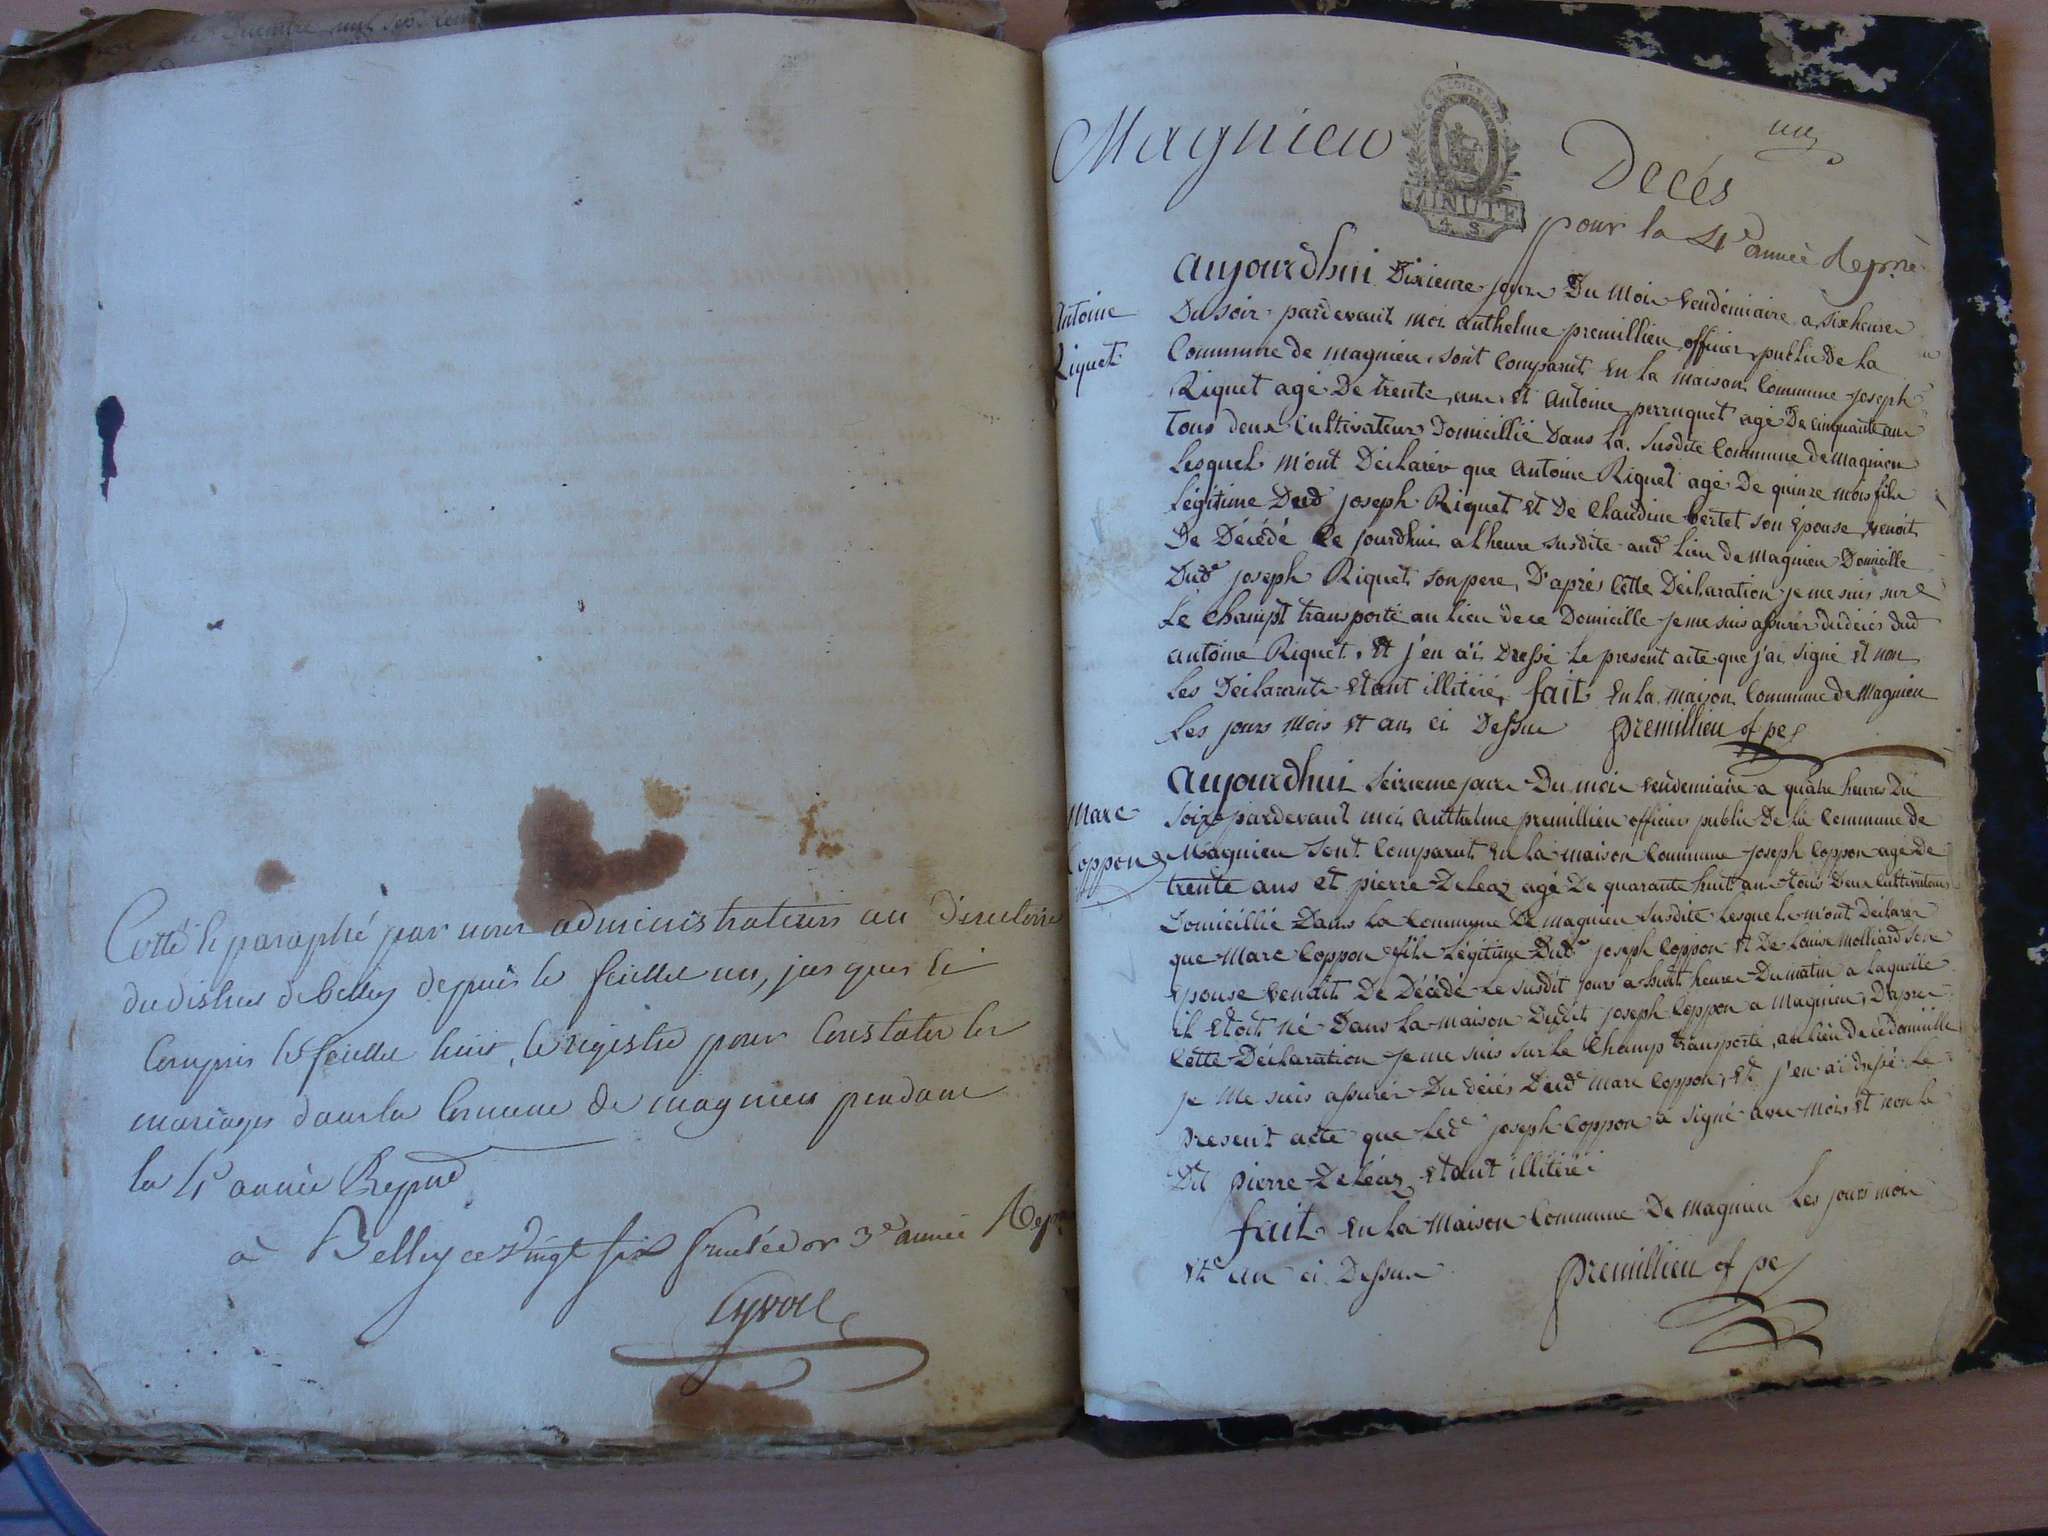 Cotté et paraphé par nous administrateurs au Directoire
du district de belley depuis le feuillet un, jusques et
compris le feuillet huit, le registre pour constater les
mariages dans la commune de magnieu pendant
la 4e année Repne
à Belley ce vingt six fructidor 3e année Repne
Magnieu
MINUTE
4. S.
un
Decés
pour la 4e année Repne
Antoine
Riquet
aujourdhui Dixieme jour Du Mois vendémiaire a six heures
Du soir pardevant moi anthelme premillieu officier public De la
Commune de magnieu sont comparut en la maison Commune joseph
Riquet agé De trente ans et antoine perruquet agé De cinquante ans
tous deux Cultivateurs Domicillié Dans la susdite Commune de magnieu
lesquel m'ont Déclarér que antoine Riquet agé De quinze mois fils
légitime Dud joseph Riquet et De Claudine bertet son épouse venoit
De Décédé le jourdhui a lheure susdite aud lieu de magnieu Domicille
Dude joseph Riquet son pere, D'après cette Déclaration je me suis sur
le Champt transporté au lieu de ce Domicille je me suis assurér du décés dud
antoine Riquet. et j'en ai Dressé le present acte que j'ai signé et non
les Déclarants etant illitéré, fait en la maison Commune de Magnieu
les jours mois et an ci Dessus premillieu of pe
Marc
Coppon
aujourdhui seizieme jour Du mois vendemiaire a quatre heures Du
soir pardevant moi anthelme premillieu officier public De la Commune de
Magnieu sont comparut en la maison Commune joseph Coppon agé De
trente ans et pierre Deleaz agé De quarante huit ans tous Deux Cultivateurs
Domicillié Dans la Commune De magnieu susdite lesquel m'ont Déclarér
que Marc Coppon fils légitime Dude joseph Coppon et De Louise Molliard son
epouse venoit De Décédé le susdit jour a huit heures Du matin a laquelle
il etoit né Dans la maison Dudit joseph Coppon a Magnieu, D'apres
cette Déclaration je me suis sur le Champ transporté au lieu de ce domicille
je me suis assurér Du décés Dude marc Coppon, et j'en ai dressé le
present acte que lede joseph Coppon a signé avec mois et non le
Dit pierre Deléaz etant illitéré
fait en la Maison Commune De magnieu les jours mois
et an ci Dessus premillieu of pe